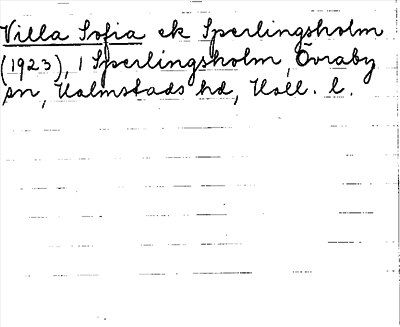 Villa Sofia ek Sperlingsholm
(1923), 1 Sperlingsholm, Övraby
sn, Halmstads hd, Hall. l.